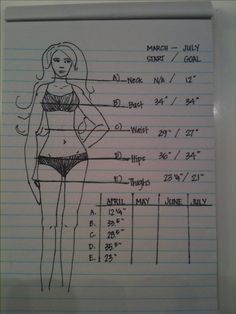 MARCH — JULY
START / GOAL
A) Neck N/A / 12"
B) Bust 34" / 34"
C) Waist 29" / 27"
D) Hips 36" / 34"
E) Thighs 23 ¼" / 21"
APRIL MAY JUNE JULY
A. 12 ¼"
B. 33.5"
C. 28.5"
D. 35.5"
E. 23"